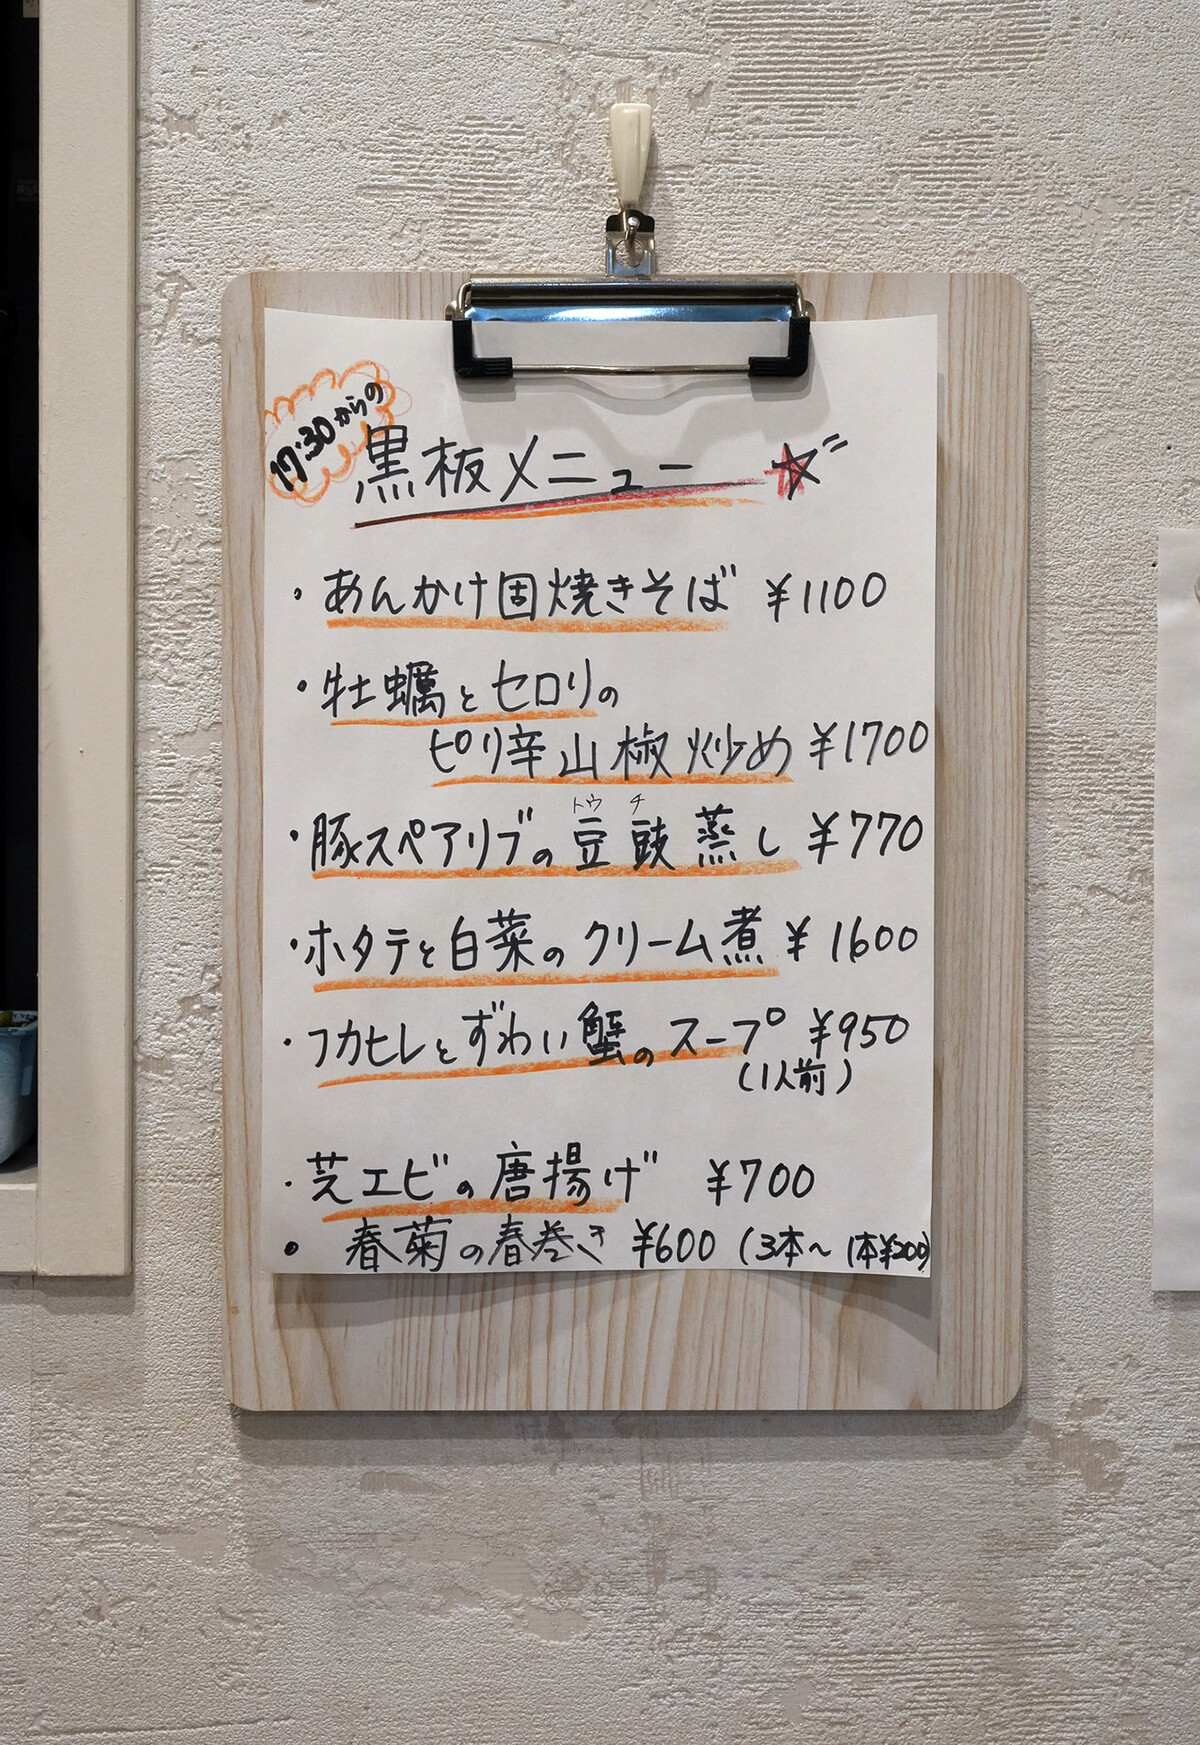 17:30からの
黒板メニュー
・あんかけ固焼きそば ¥1100
・牡蠣とセロリの
ピリ辛山椒炒め ¥1700
・豚スペアリブの豆鼓蒸し ¥770
トウ チ
・ホタテと白菜のクリーム煮 ¥1600
・フカヒレとずわい蟹のスープ ¥950
(1人前)
・芝エビの唐揚げ ¥700
・春菊の春巻き ¥600 (3本~ 1本¥200)